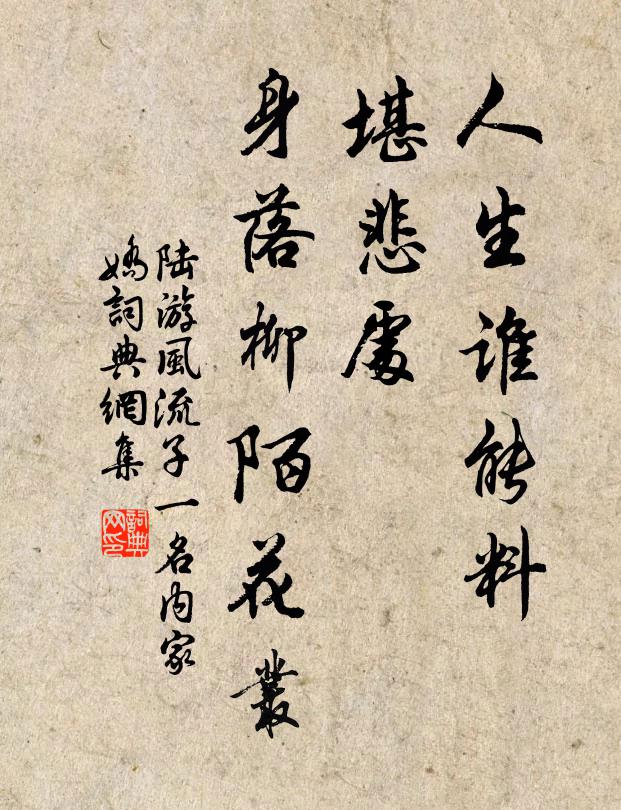 人生谁能料
堪悲處
身落柳陌花叢
陆游風流子一名内家
嬌詞典網集
詞典网印